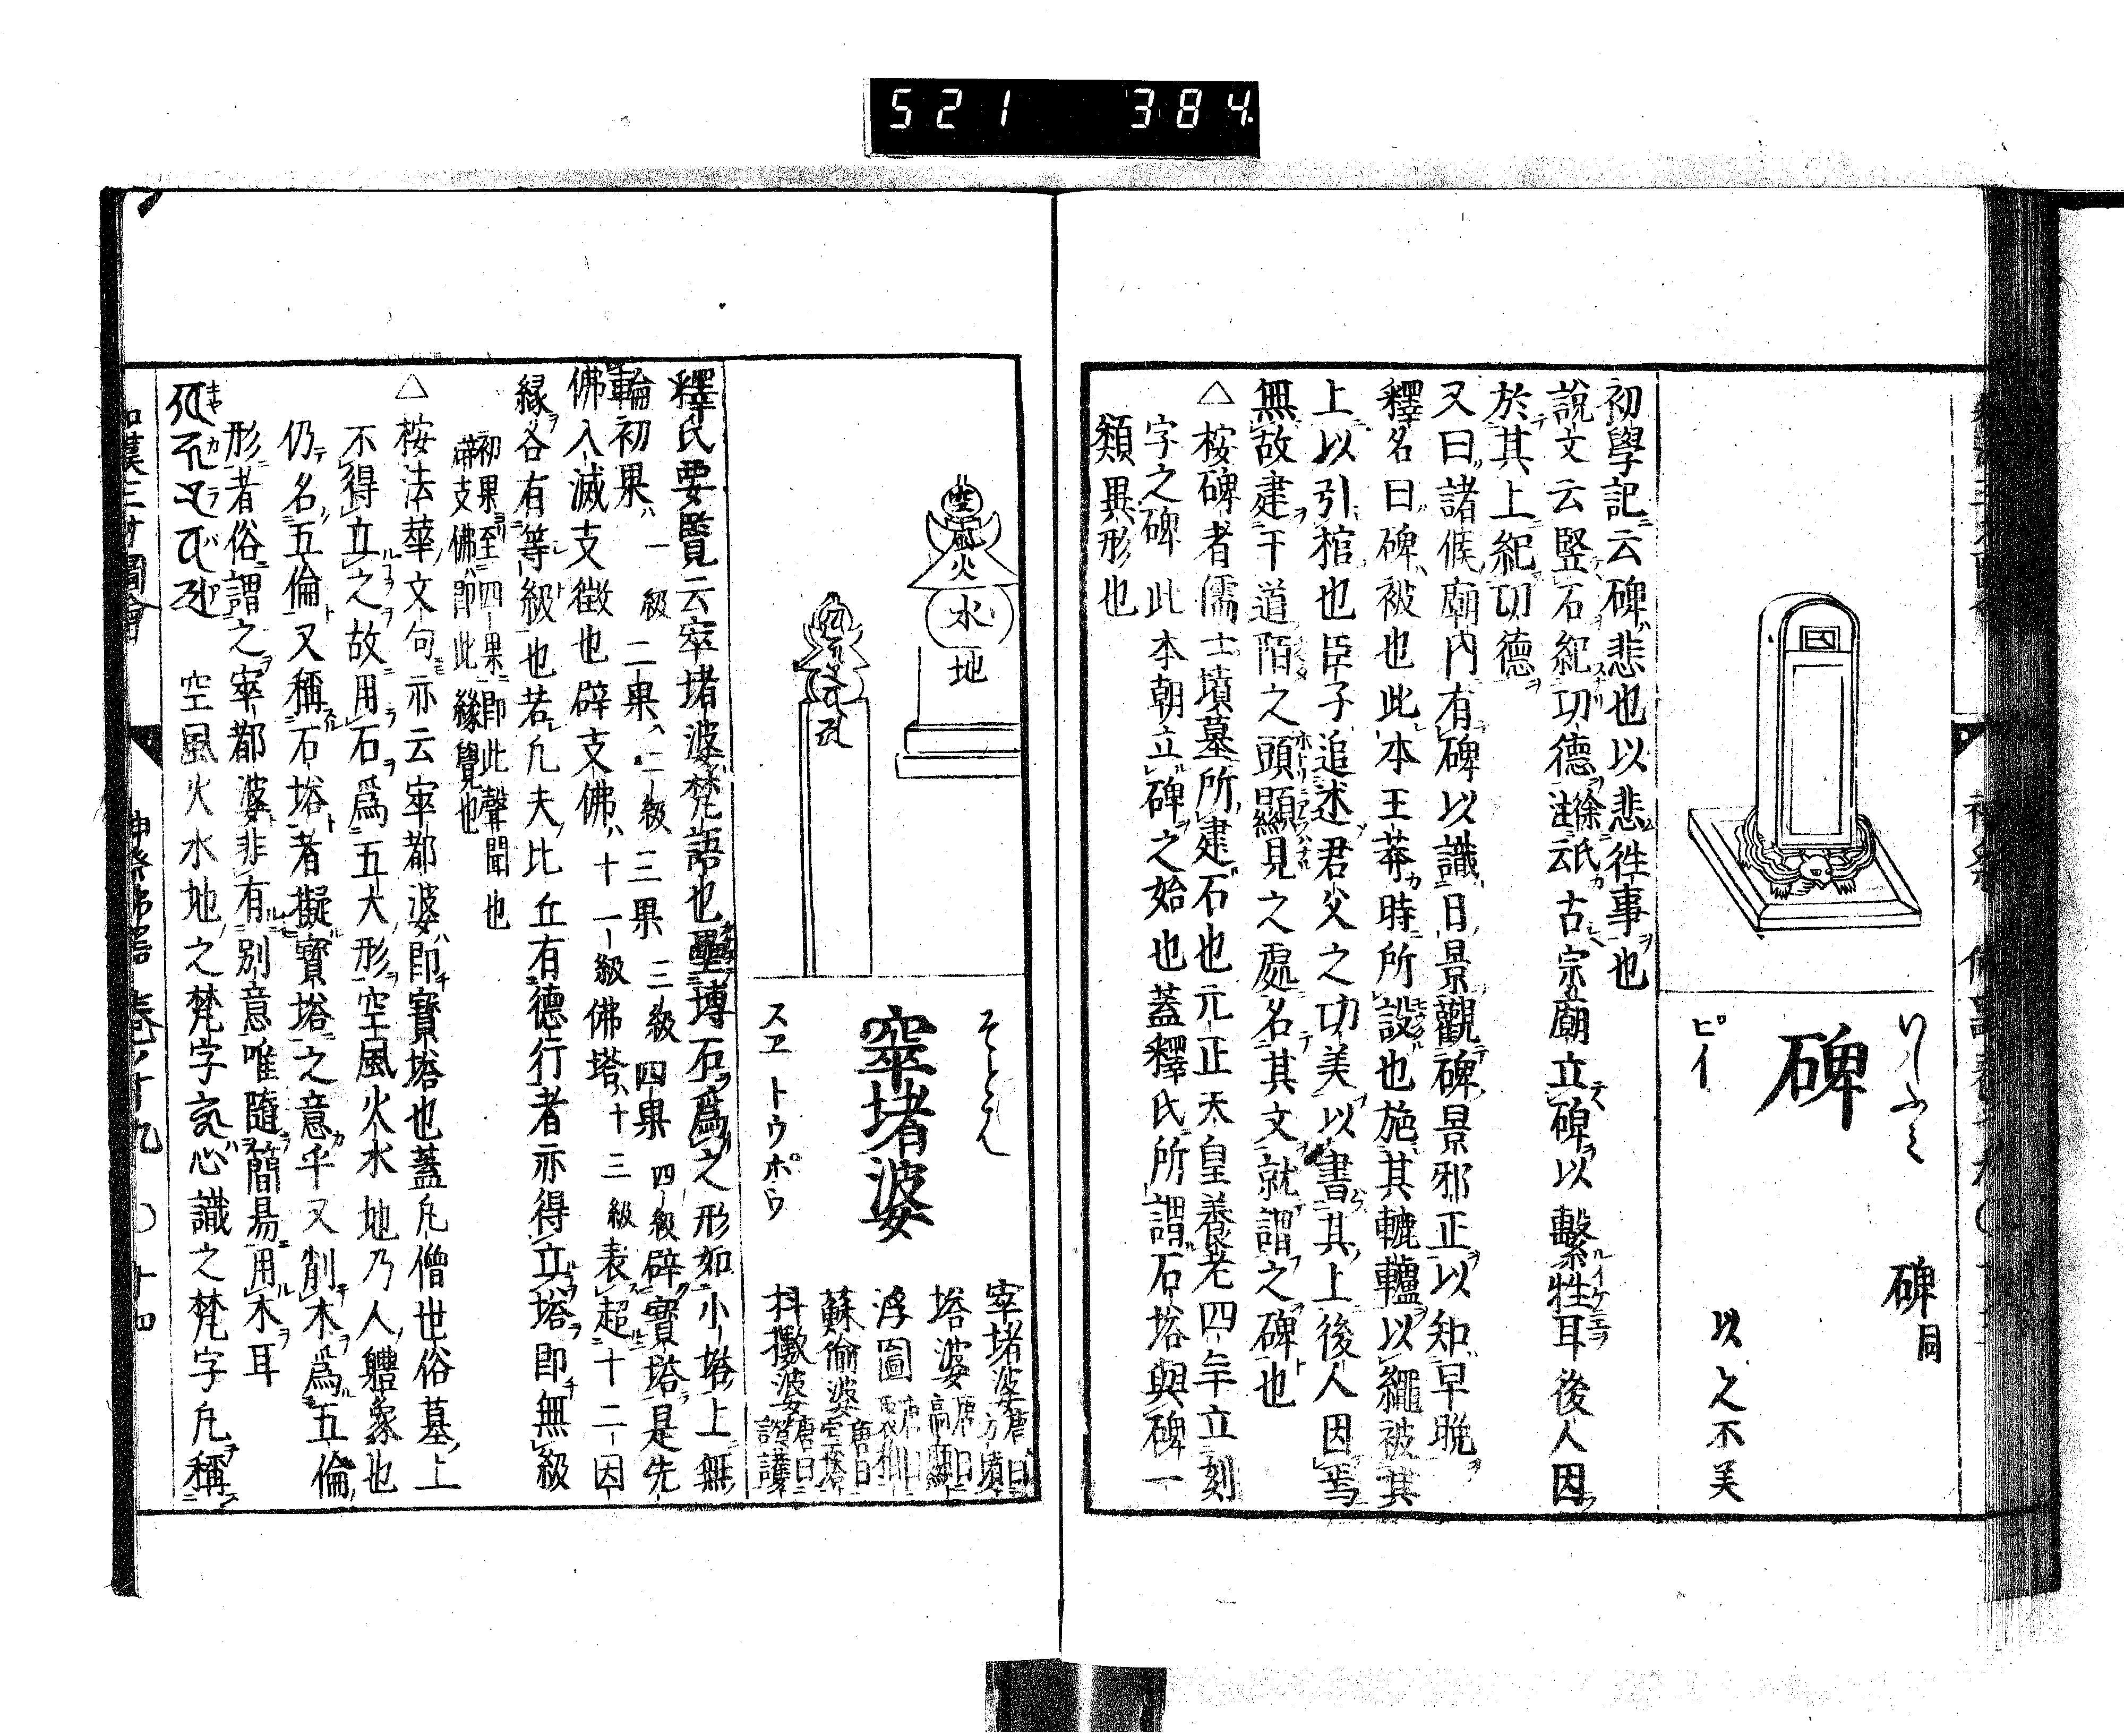 521 384.
いしふみ
碑
ピイ
碑同
初學記云碑悲也以悲徃事也
說文云竪石紀功德徐氏註云古宗廟立碑以繫牲耳後人因
於其上紀功德
又曰諸侯廟內有碑以識日景觀碑景邪正以知早晚
釋名曰碑被也此本王莽時所設也施其轆轤以繩被其
上以引棺也臣子追述君父之功美以書其上後人因焉
無故建于道陌之頭顯見之處名其文就謂之碑也
△桉碑者儒士墳墓所建石也元正天皇養老四年立刻
字之碑此本朝立碑之始也蓋釋氏所謂石塔與碑一
類異形也
空
風
火
水
地
そとは
窣堵婆
スヱトウポウ
窣堵婆唐曰方墳
塔婆唐曰高顯
浮圖唐曰聚相
蘇偷婆唐曰宝塔
抖擻婆唐曰讃護
釋氏要覽云窣堵婆梵語也壘塼石爲之形如小塔上無
輪初果一級二果二級三果三級四果四級辟寶塔是先
佛入滅支徵也辟支佛十一級佛塔十三級表超十二因
緣各有等級也若凡夫比丘有德行者亦得立塔即無級
初果至四果即此聲聞也
辟支佛即此緣覺也
△桉法華文句亦云窣都婆即寶塔也蓋凡僧世俗墓上
不得立之故用石爲五大形空風火水地乃人軆象也
仍名五倫又稱石塔者擬寶塔之意乎又削木爲五倫
形者俗謂之窣都婆非有別意唯隨簡易用木耳
キャカラバア
空風火水地之梵字
心識之梵字凡稱
和漢三才圖會
神祭佛噐 卷ノ十九 〇十四